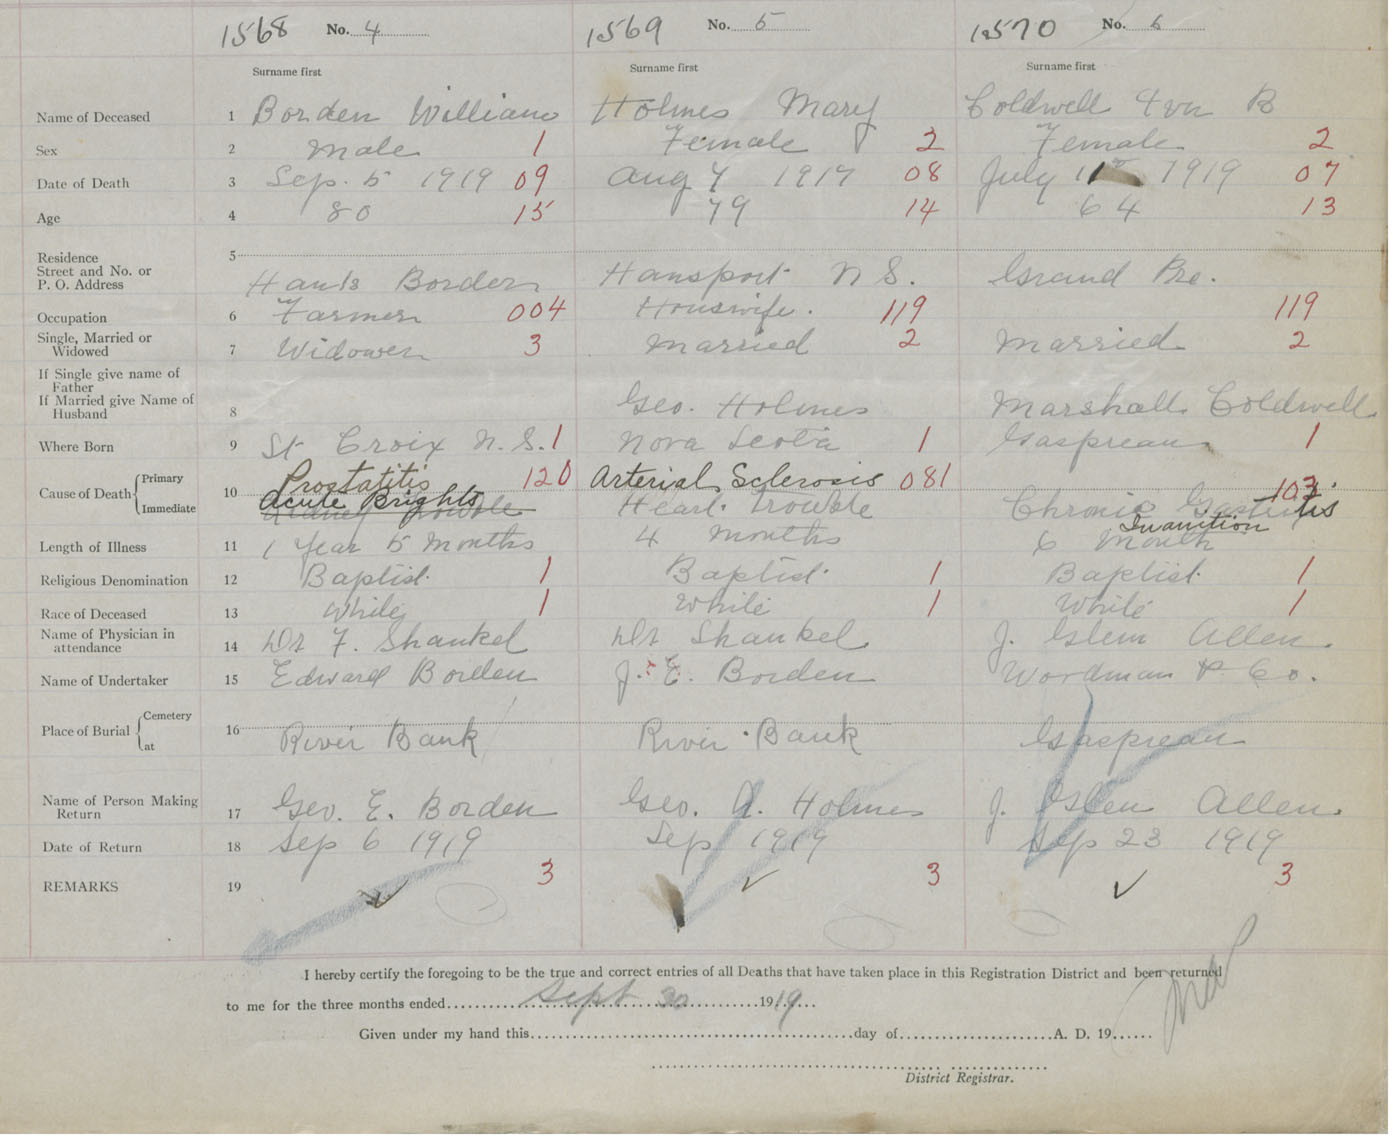 1568 No. 4 1569 No. 5 1570 No. 6
Surname first Surname first Surname first
Name of Deceased 1 Borden William Holmes Mary Coldwell B
Sex 2 Male 1 Female 2 Female 2
Date of Death 3 Sep. 5 1919 09 Aug 4 1919 08 July 11 1919 07
Age 4 80 15 79 14 64 13
Residence
Street and No. or
P. O. Address
5 Hants Border Hansport N S. Grand Pre.
Occupation 6 Farmer 004 Houswife. 119 119
Single, Married or
Widowed
7 Widower 3 Married 2 Married 2
If Single give name of
Father
If Married give Name of
Husband
8 Geo. Holmes Marshall Coldwell
Where Born 9 St Croix N.S. 1 Nova Scotia 1 Gaspreau 1
Cause of Death Primary Immediate 10
Prostatitis 120 Arterial Sclerosis 081 103
Acute Brights Heart Trouble Chronic Gastritis
Kidney Trouble Inanition
Length of Illness 11 1 Year 5 Months 4 Months 6 Month
Religious Denomination 12 Baptist. 1 Baptist. 1 Baptist. 1
Race of Deceased 13 White 1 White 1 White 1
Name of Physician in
attendance
14 Dr F. Shankel Dr Shankel J. Glen Allen.
Name of Undertaker 15 Edward Borden J. E. Borden Woodman & Co.
Place of Burial Cemetery at 16 River Bank River Bank Gaspreau
Name of Person Making
Return
17 Geo. E. Borden Geo. A. Holmes J. Glen Allen.
Date of Return 18 Sep 6 1919 Sep 1919 Sep 23 1919
REMARKS 19 3 3 3
I hereby certify the foregoing to be the true and correct entries of all Deaths that have taken place in this Registration District and been returned
to me for the three months ended Sept 30 1919
Given under my hand this day of A. D. 19
District Registrar.